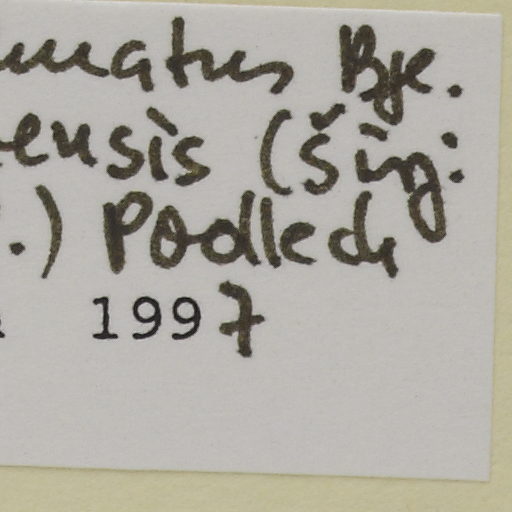 umatus Bge.
ensis (Širj.
.) Podlech
1997